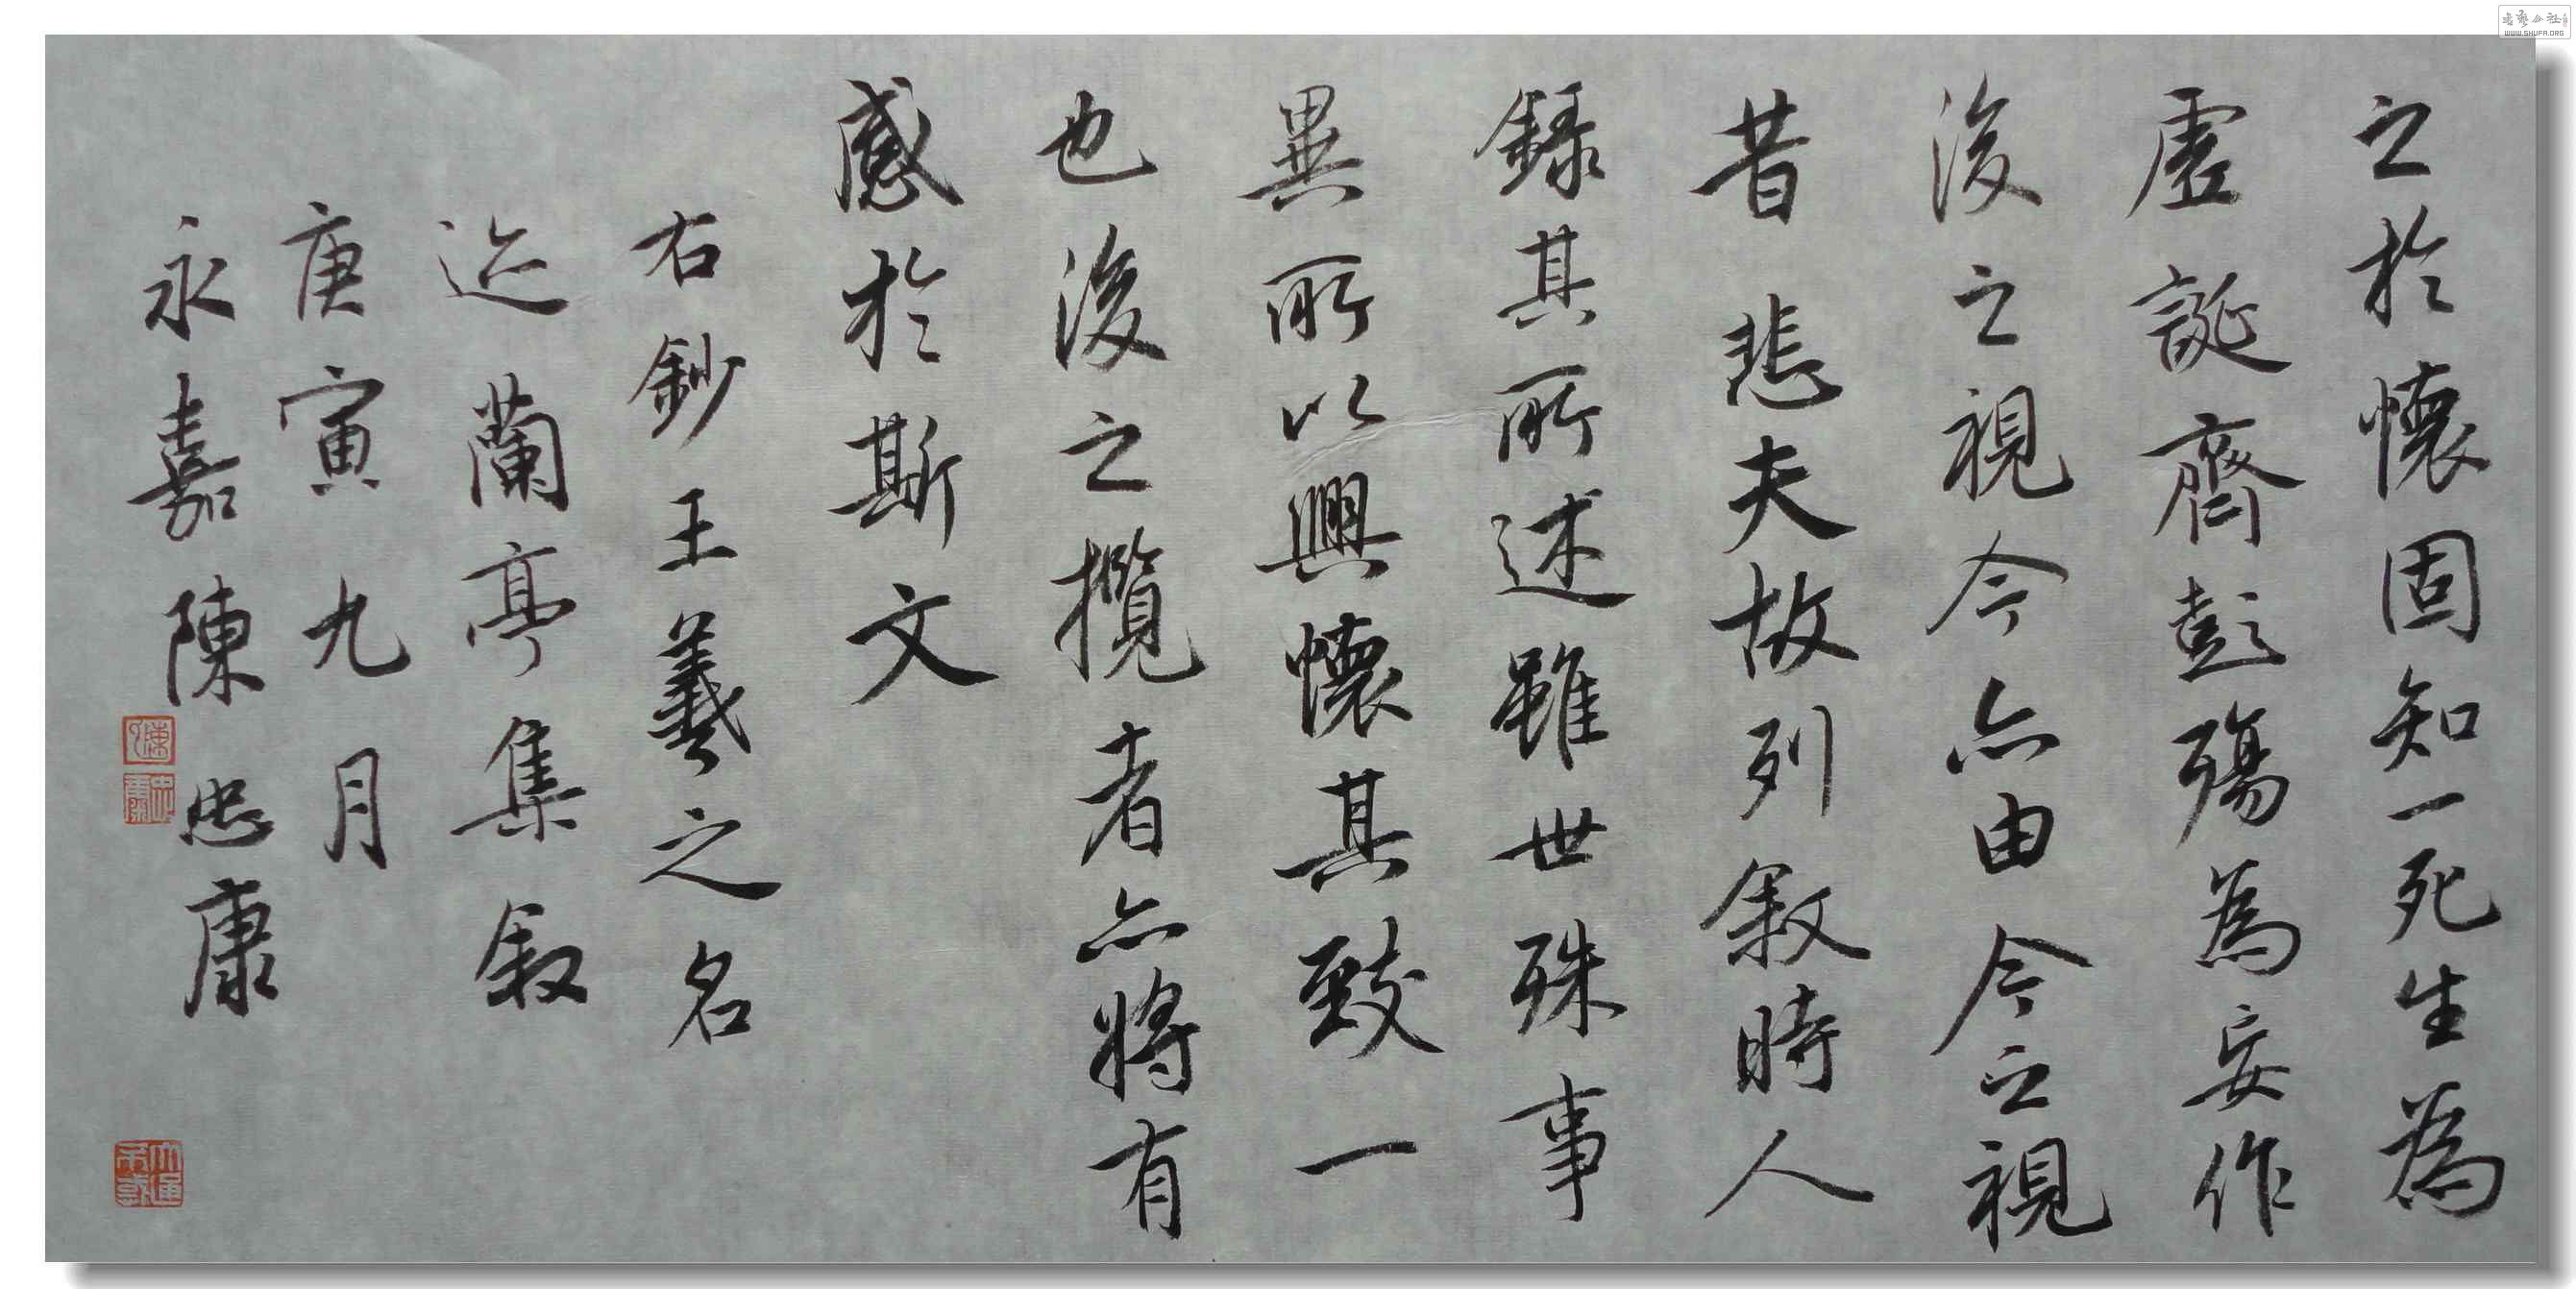 之於懷固知一死生為
虛誕齊彭殤為妄作
後之視今亦由今之視
昔悲夫故列敘時人
錄其所述雖世殊事
異所以興懷其致一
也後之攬者亦將有
感於斯文
右鈔王羲之名
迹蘭亭集叙
庚寅九月
永嘉陳忠康
WWW.SHUFA.ORG